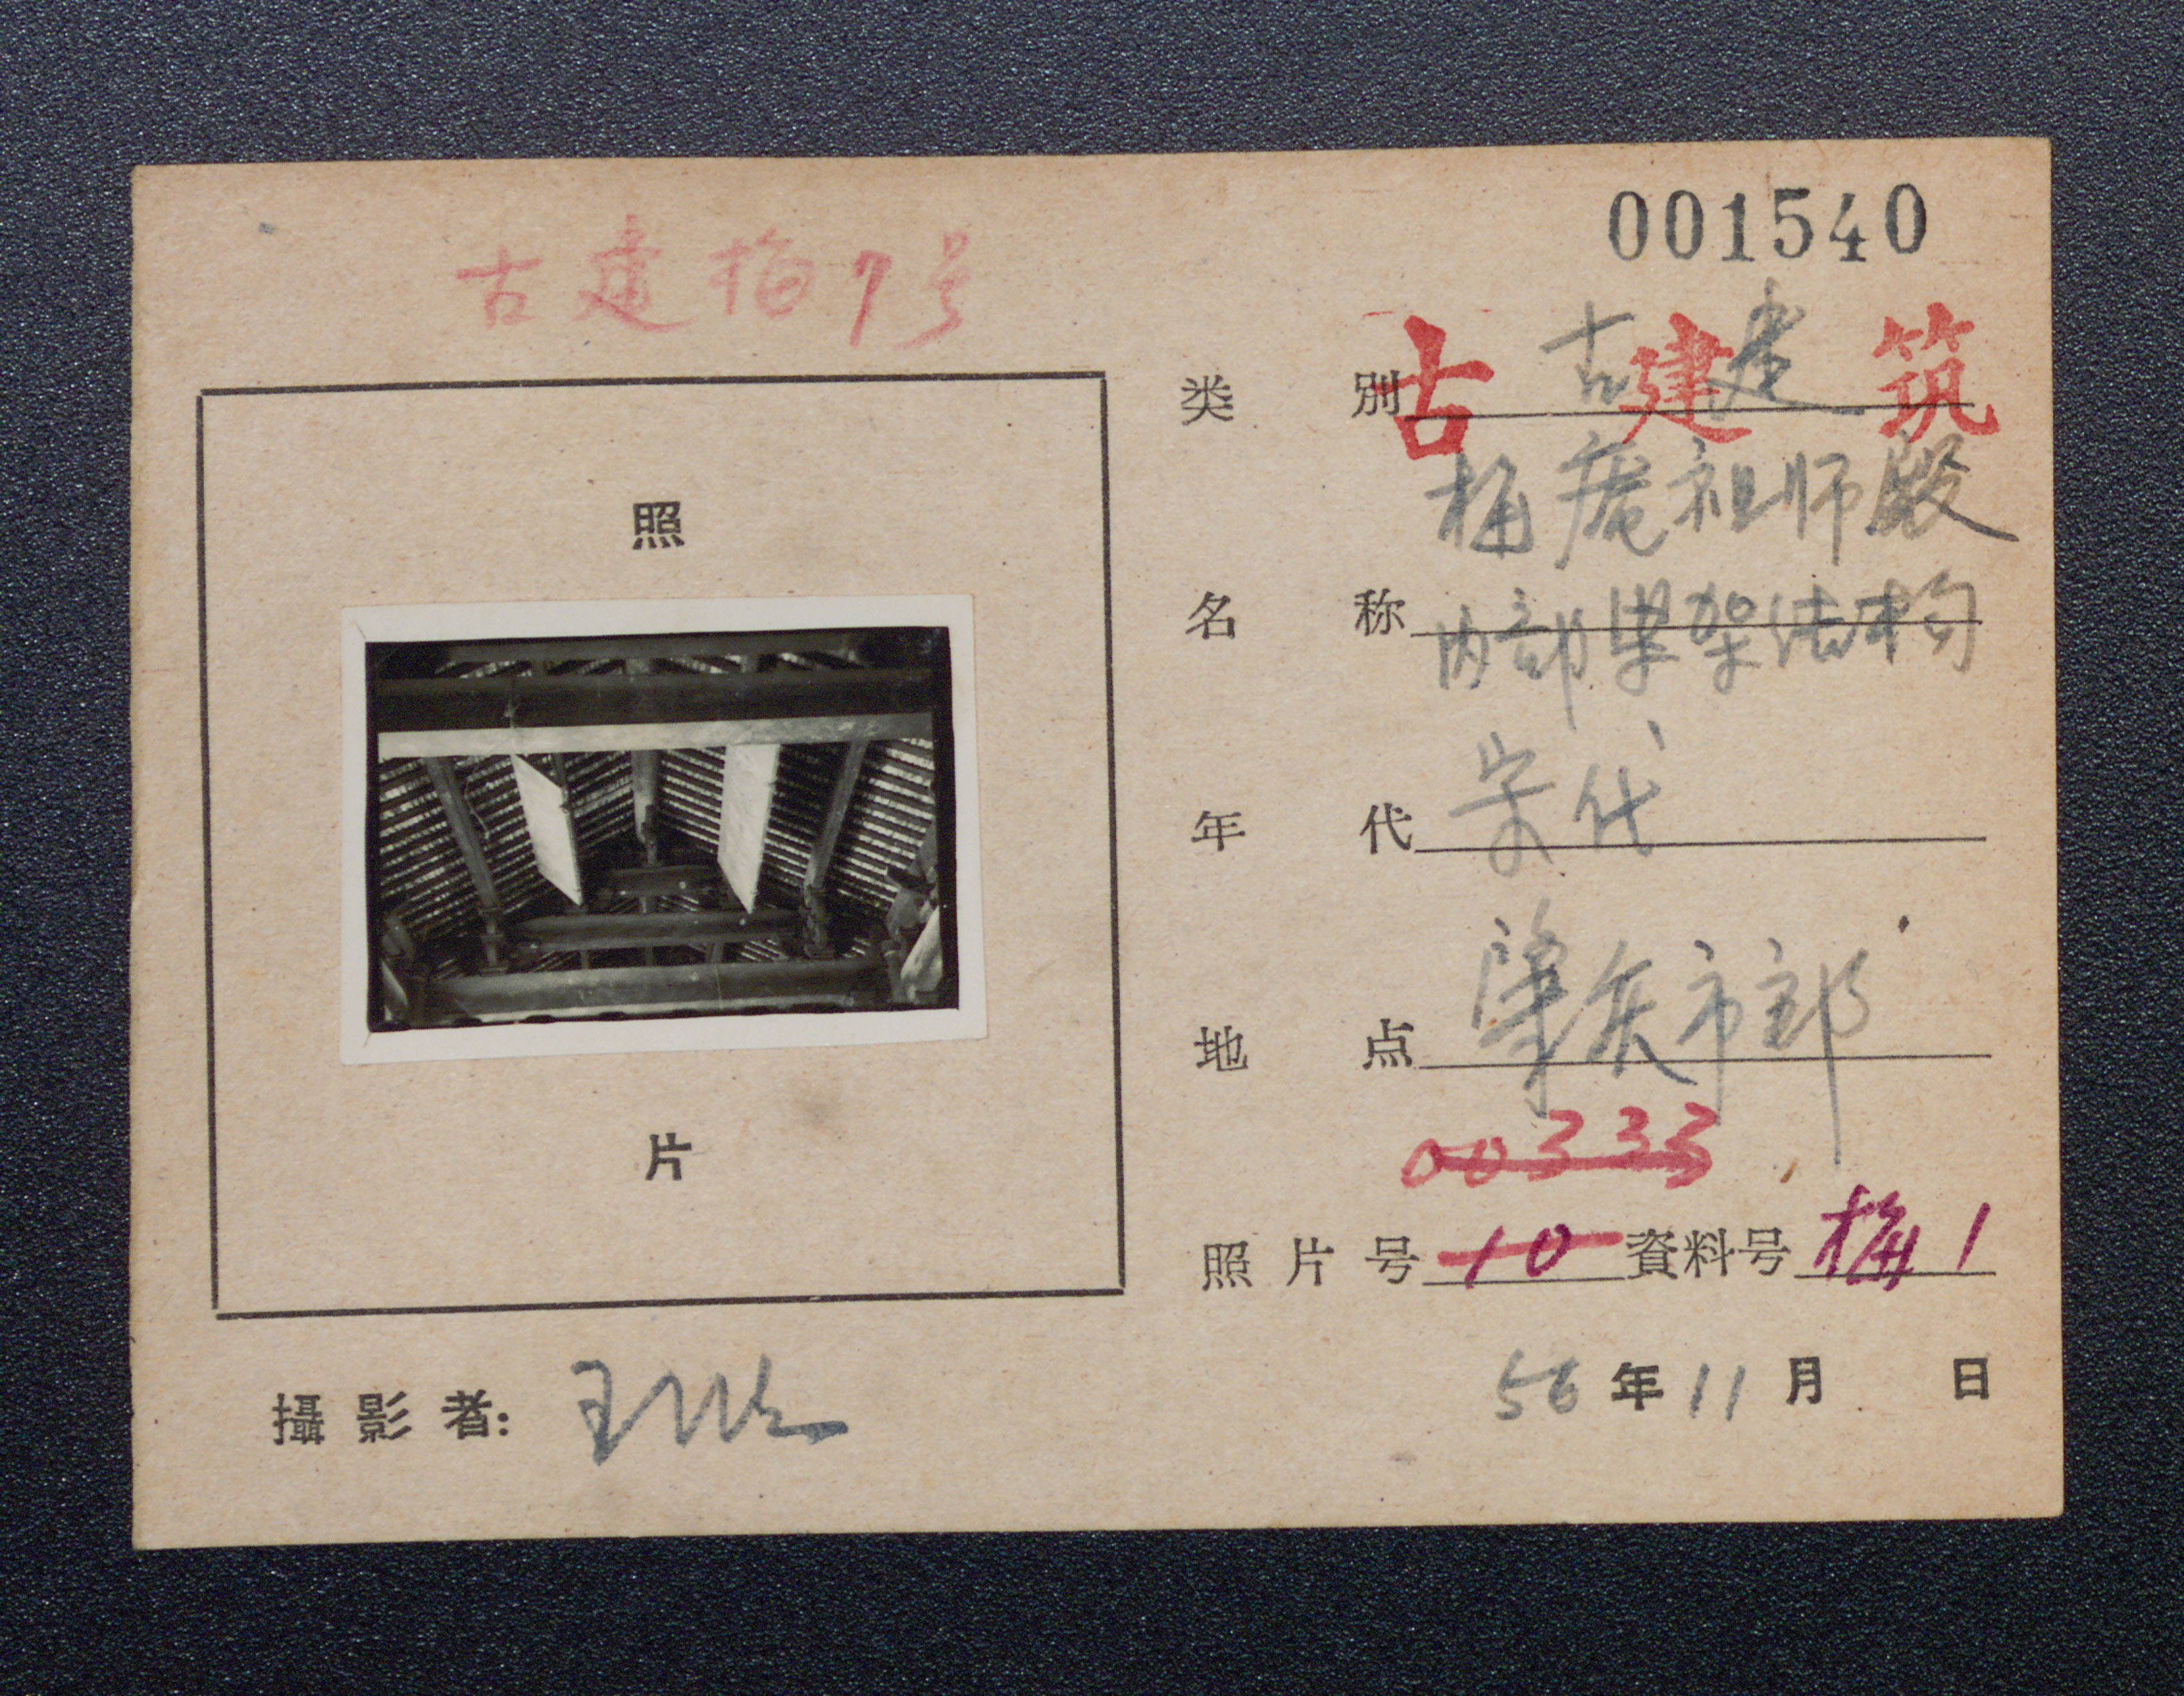 001540
古建梅7号
古建筑
类别 古建
梅庵祖师殿
名称 内部梁架结构
年代 宋代
地点 肇庆市郊
00333
照片号 10 資料号 梅1
56年11月 日
照
片
攝影者: 王